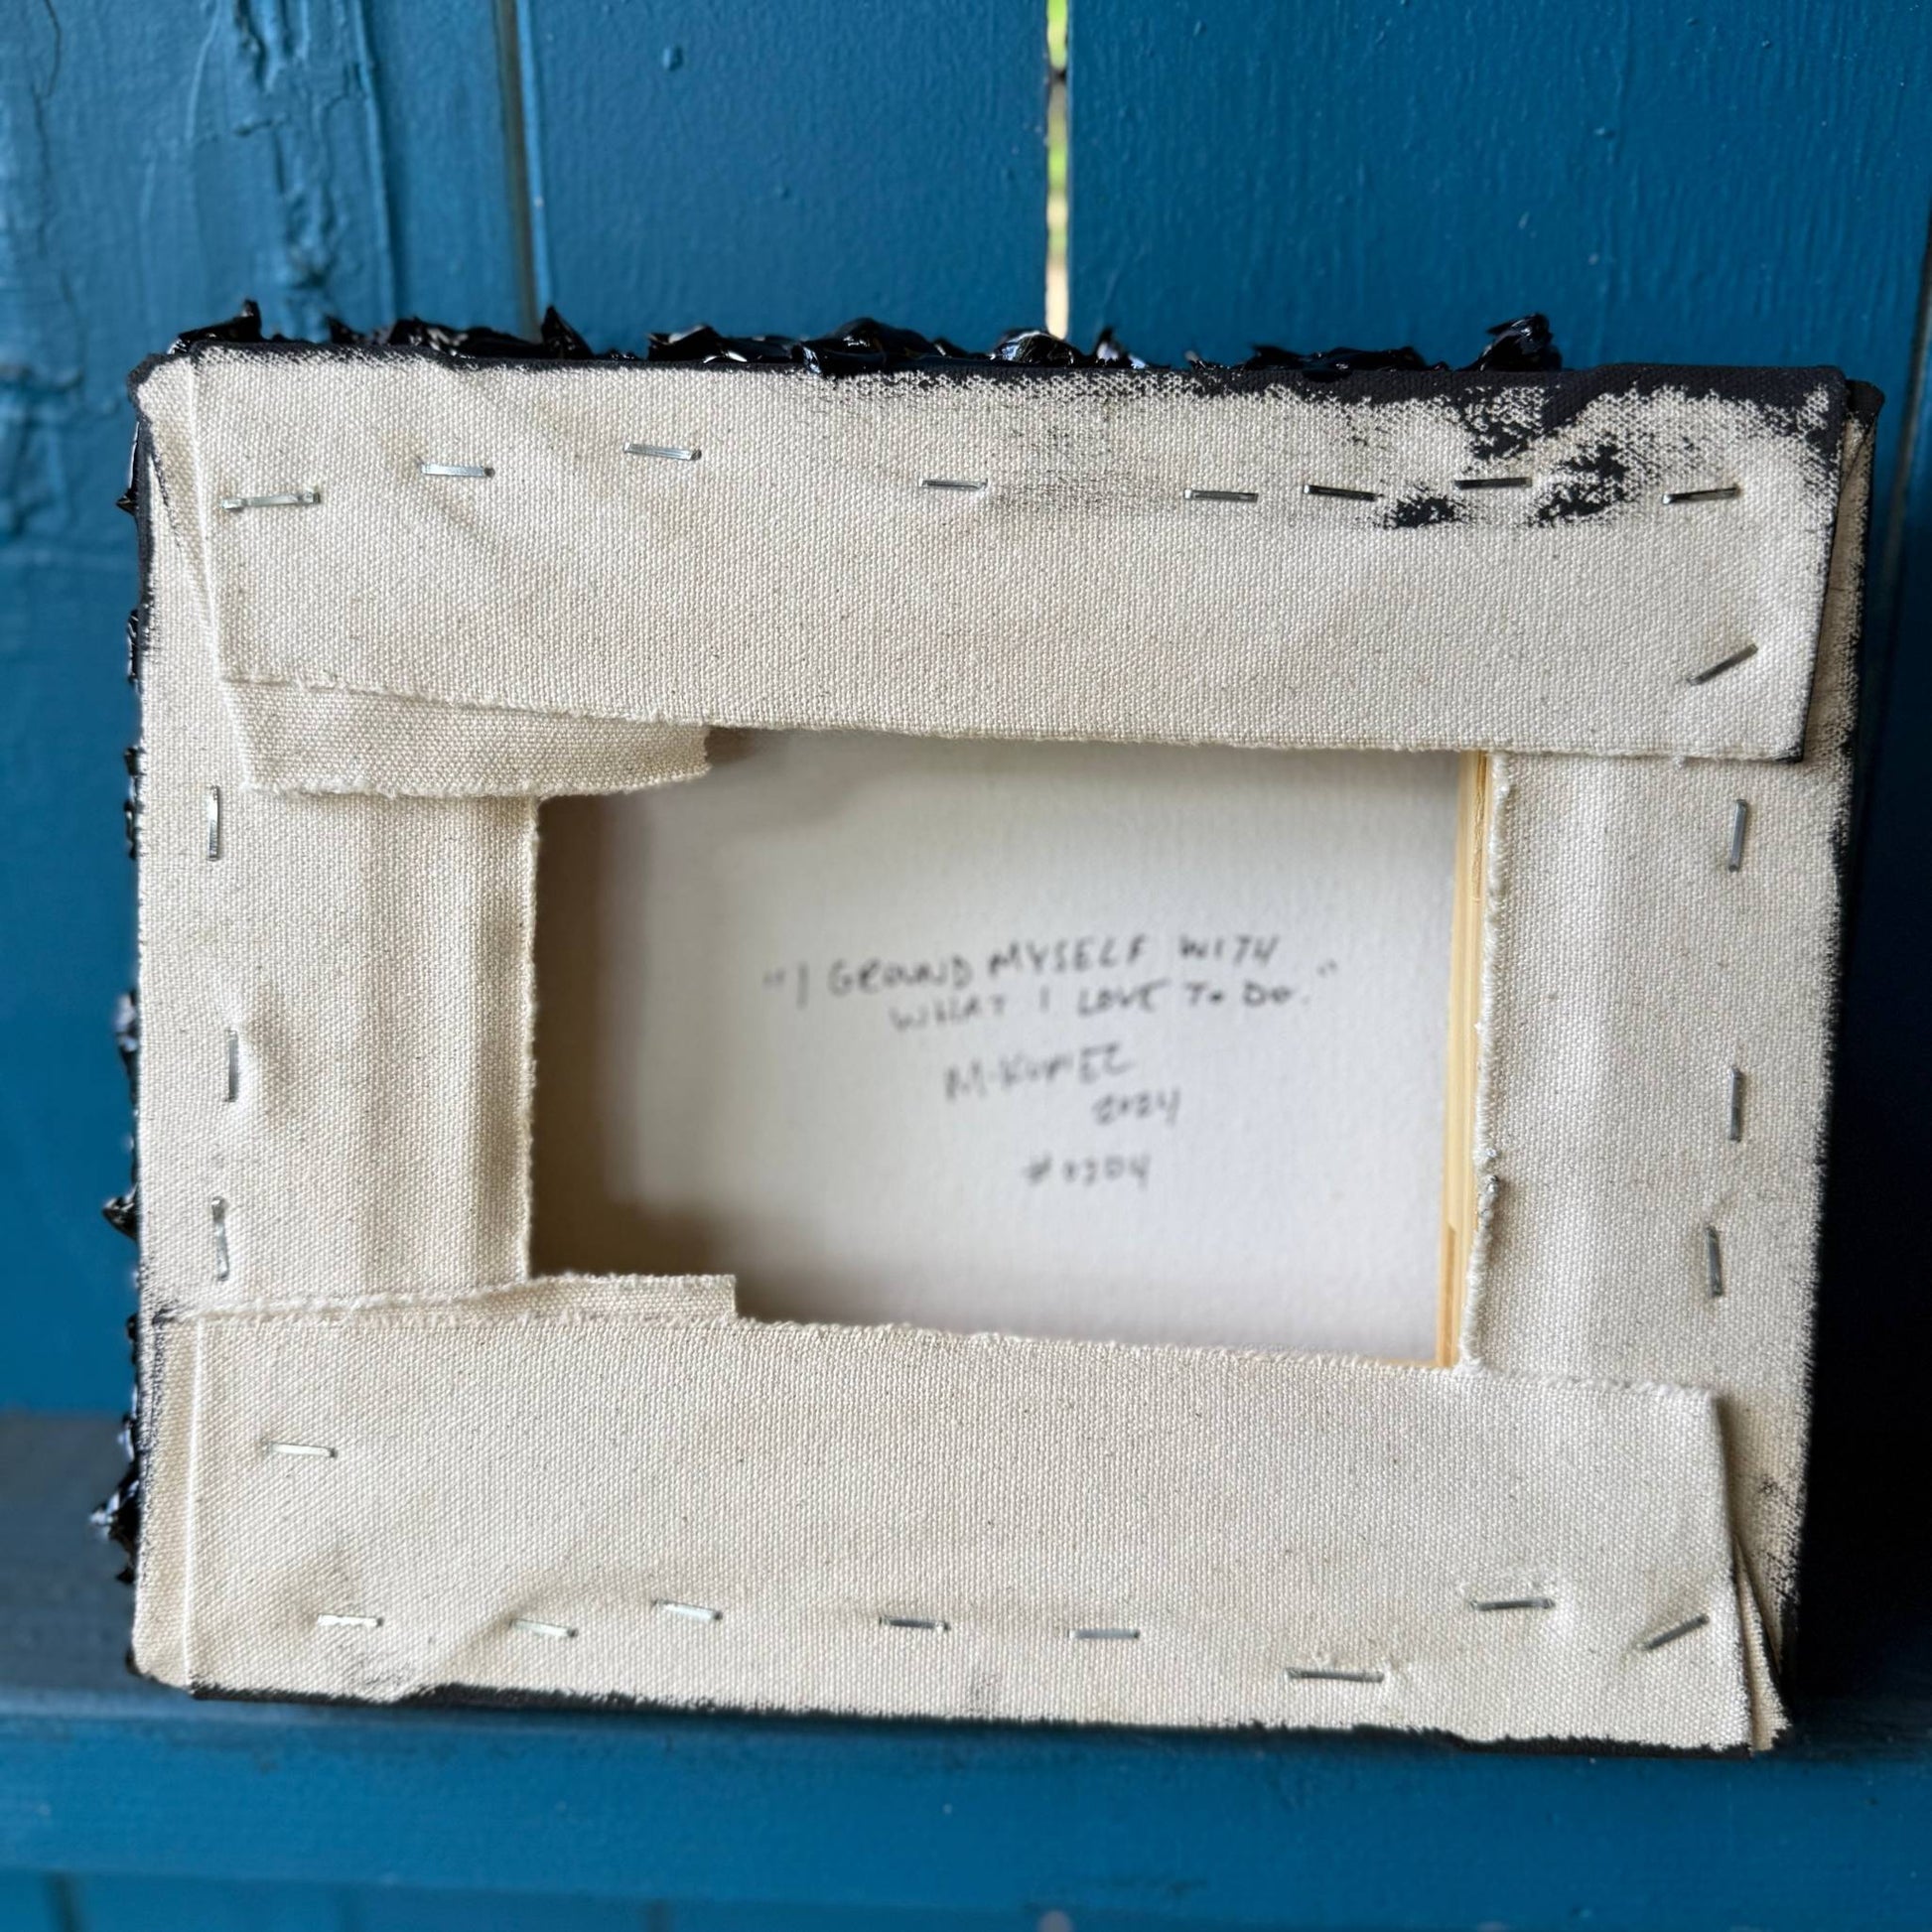 "I GROUND MYSELF WITH
WHAT I LOVE TO DO."
2024